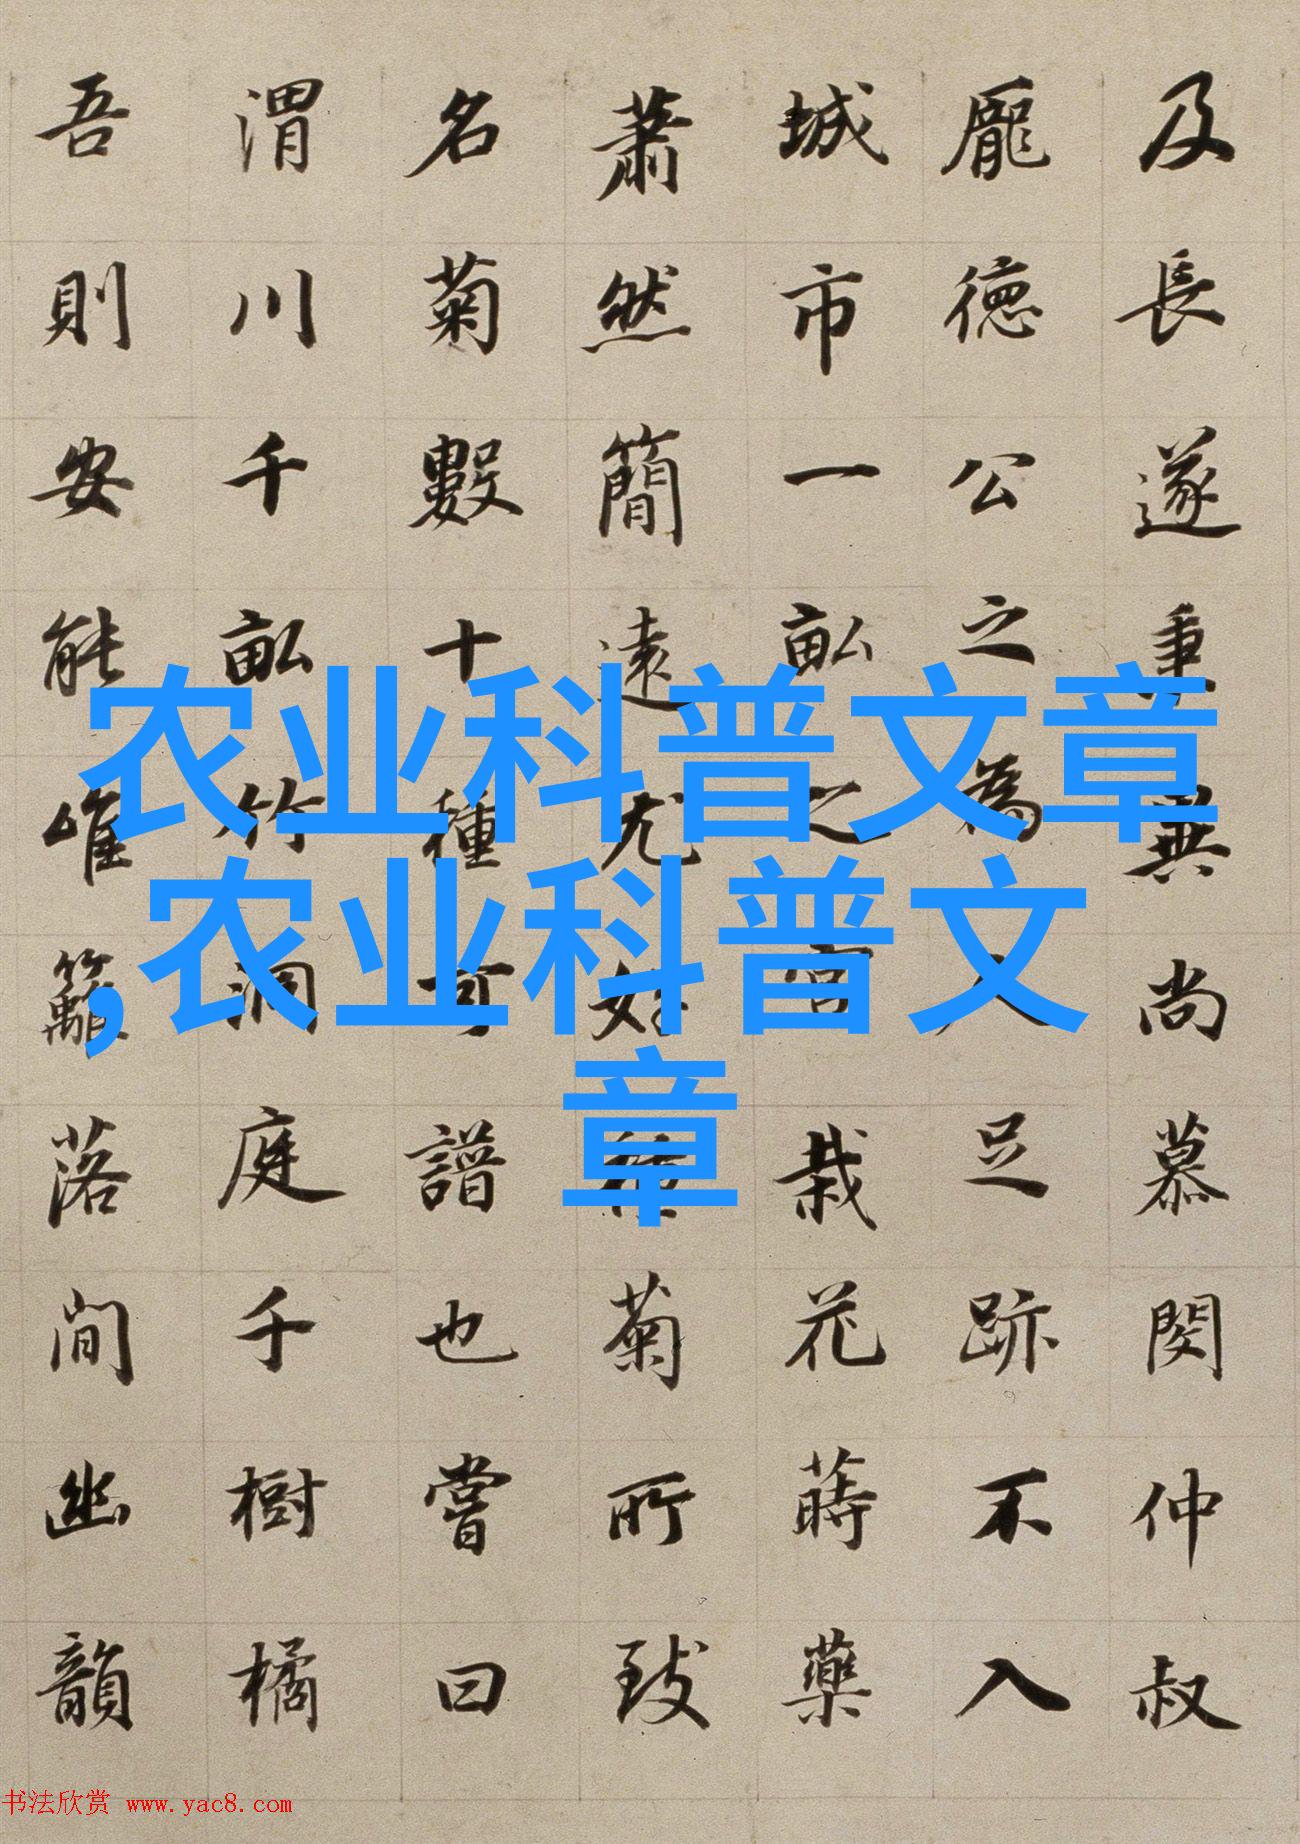 及長遂秉異尚慕閔仲叔
龐德公之為人足跡不入
城市一畝之宮栽花蒔藥
蕭然簡遠尤好種菊所致
名菊數十種可譜也嘗曰
渭川千畝竹洞庭千樹橘
吾則安能唯籬落間幽韻
农业科普文章
,农业科普文
章
书法欣赏 www.yac8.com